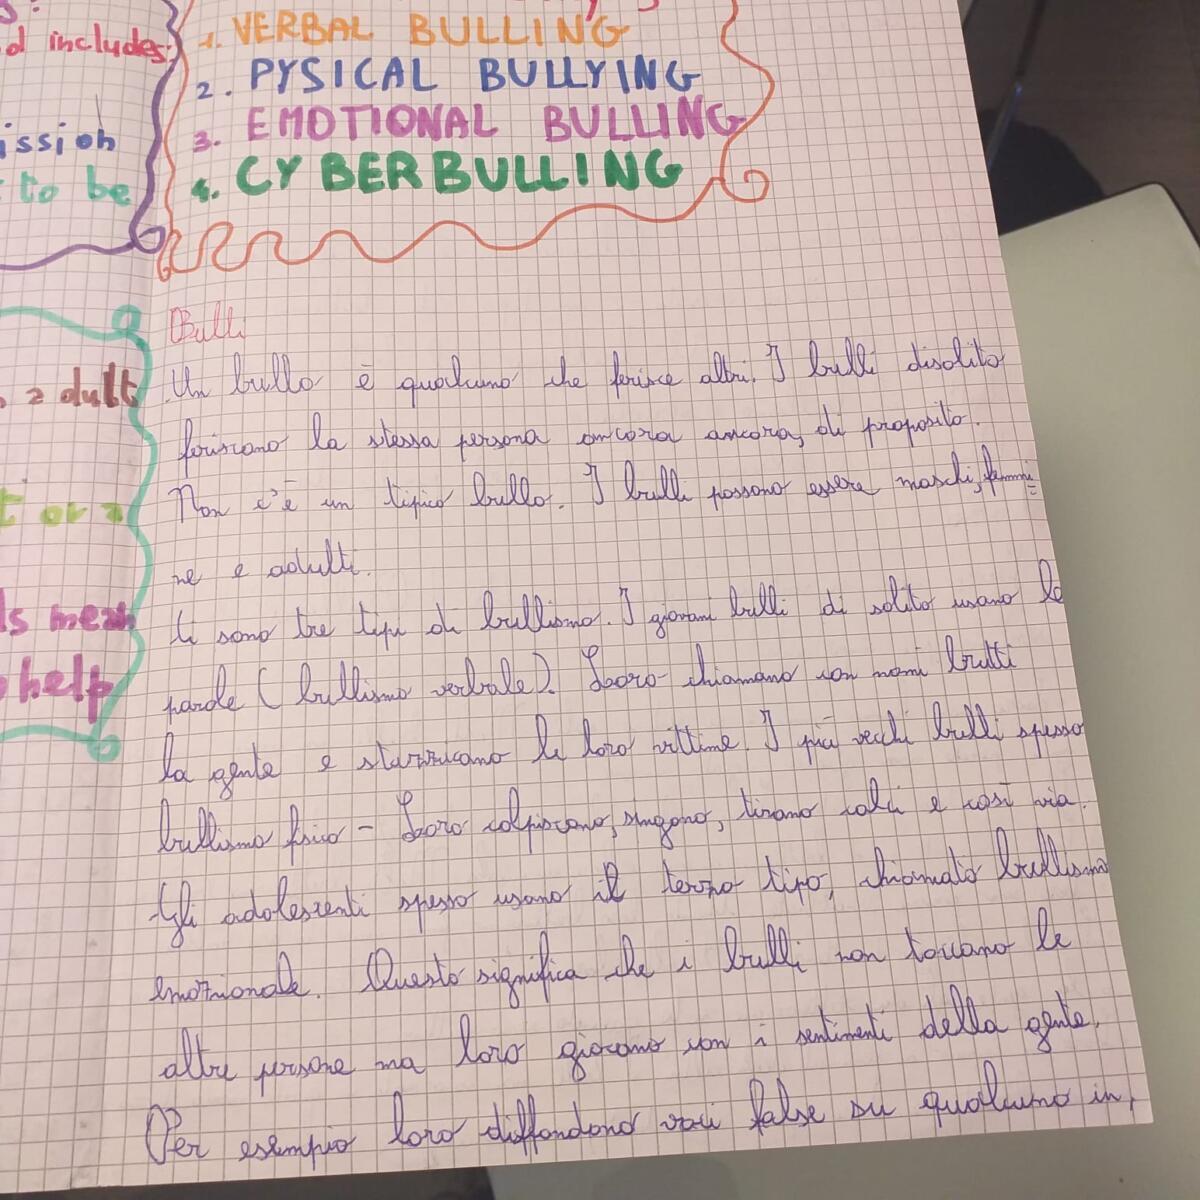 d includes:
ission
to be
1. VERBAL BULLING
2. PYSICAL BULLYING
3. EMOTIONAL BULLING
4. CYBERBULLING
adult
t or a
ls mean
help
Bulli
Un bullo è qualcuno che ferisce altri. I bulli disolito
feriscono la stessa persona ancora ancora, di proposito.
Non c'e un tipico bullo. I bulli possono essere maschi, femmi=
ne e adulti.
Ci sono tre tipi di bullismo. I giovani bulli di solito usano le
parole (bullismo verbale). Loro chiamano con nomi brutti
la gente e stuzzicano le loro vittime. I più vecchi bulli spesso
bullismo fisico - Loro colpiscono, singono, tirano calci e così via.
Gli adolescenti spesso usano il terzo tipo, chiamato bullismo
emozionale. Questo significa che i bulli non toccano le
altre persone ma loro giocano con i sentimenti della gente.
Per esempio loro diffondono voci false su qualcuno in,